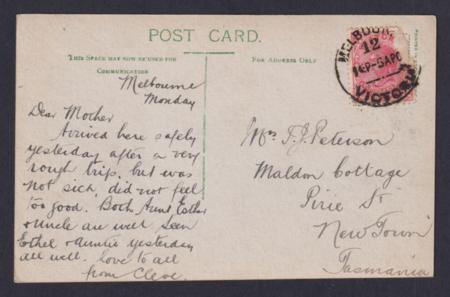 POST CARD.
THIS SPACE MAY NOW BE USED FOR
COMMUNICATION
FOR ADDRESS ONLY
MELBOURNE
12
VICTORIA
Melbourne
Monday
Dear Mother
Arrived here safely
yesterday after a very
rough trip, but was
not sick, did not feel
too good. Both Aunt Esther
& Uncle are well. Seen
Ethel & Auntie yesterday
all well. Love to all
from Cleve.
Mrs T. J. Peterson
Maldon Cottage
Pirie St
New Town
Tasmania